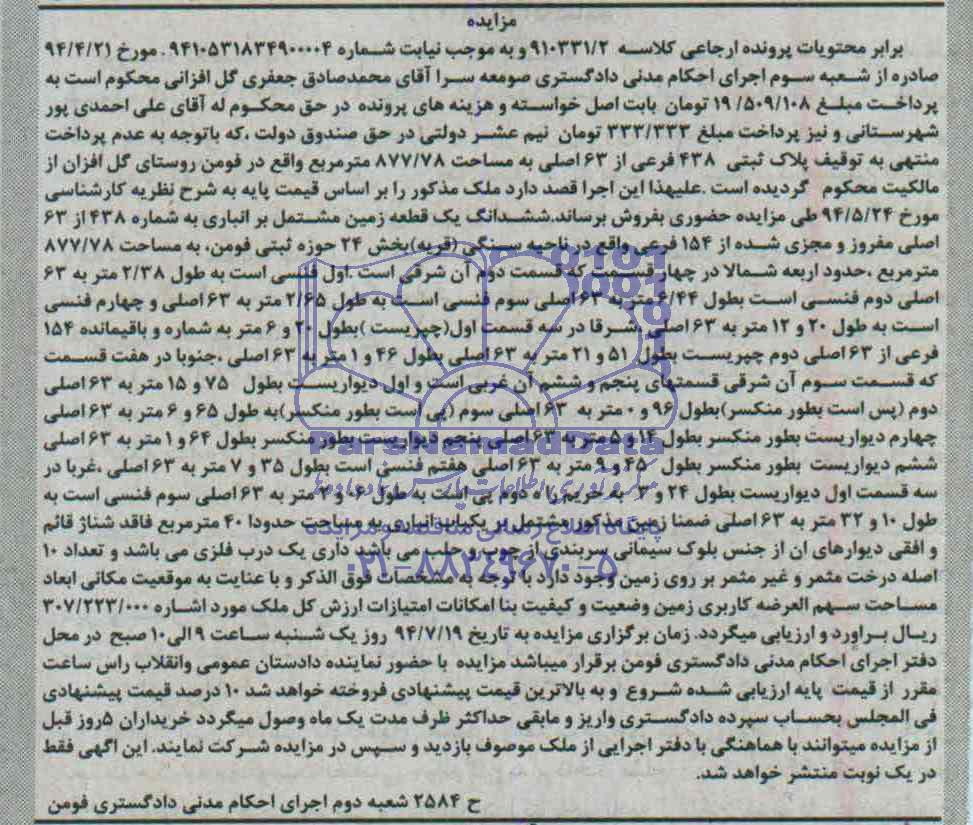 مزایده
برابر محتویات پرونده ارجاعی کلاسه ۹۱۰۳۳۱/۲ و به موجب نیابت شماره ۹۴۱۰۵۳۱۸۳۴۹۰۰۰۰۴ . مورخ ۹۴/۴/۲۱
صادره از شعبه سوم اجرای احکام مدنی دادگستری صومعه سرا آقای محمدصادق جعفری گل افزانی محکوم است به
پرداخت مبلغ ۱۹/۵۰۹/۱۰۸ تومان بابت اصل خواسته و هزینه های پرونده در حق محکوم له آقای علی احمدی پور
شهرستانی و نیز پرداخت مبلغ ۳۳۳/۳۳۳ تومان نیم عشر دولتی در حق صندوق دولت ،که باتوجه به عدم پرداخت
منتهی به توقیف پلاک ثبتی ۴۳۸ فرعی از ۶۳ اصلی به مساحت ۸۷۷/۷۸ مترمربع واقع در فومن روستای گل افزان از
مالکیت محکوم گردیده است .علیهذا این اجرا قصد دارد ملک مذکور را بر اساس قیمت پایه به شرح نظریه کارشناسی
مورخ ۹۴/۵/۲۴ طی مزایده حضوری بفروش برساند.ششدانگ یک قطعه زمین مشتمل بر انباری به شماره ۴۳۸ از ۶۳
اصلی مفروز و مجزی شده از ۱۵۴ فرعی واقع در ناحیه سنگی (قریه)بخش ۲۴ حوزه ثبتی فومن، به مساحت ۸۷۷/۷۸
مترمربع ،حدود اربعه شمالا در چهار قسمت که قسمت دوم آن شرقی است .اول فنسی است به طول ۲/۳۸ متر به ۶۳
اصلی دوم فنسی است بطول ۶/۴۴ متر به ۶۳ اصلی سوم فنسی است به طول ۲/۶۵ متر به ۶۳ اصلی و چهارم فنسی
است به طول ۲۰ و ۱۲ متر به ۶۳ اصلی ،شرقا در سه قسمت اول(چپریست )بطول ۲۰ و ۶ متر به شماره و باقیمانده ۱۵۴
فرعی از ۶۳ اصلی دوم چپریست بطول ۵۱ و ۲۱ متر به ۶۳ اصلی بطول ۴۶ و ۱ متر به ۶۳ اصلی ،جنوبا در هفت قسمت
که قسمت سوم آن شرقی قسمتهای پنجم و ششم آن غربی است و اول دیواریست بطول ۷۵ و ۱۵ متر به ۶۳ اصلی
دوم (پس است بطور منکسر)بطول ۹۶ و ۰ متر به ۶۳ اصلی سوم (پی است بطور منکسر)به طول ۶۵ و ۶ متر به ۶۳ اصلی
چهارم دیواریست بطور منکسر بطول ۱۴ و ۵ متر به ۶۳ اصلی پنجم دیواریست بطور منکسر بطول ۶۴ و ۱ متر به ۶۳ اصلی
ششم دیواریست بطور منکسر بطول ۴۵ و ۹ متر به ۶۳ اصلی هفتم فنسی است بطول ۳۵ و ۷ متر به ۶۳ اصلی ،غربا در
سه قسمت اول دیواریست بطول ۲۴ و ۳ به حریم راه دوم پی است به طول ۰۶ و ۲ متر به ۶۳ اصلی سوم فنسی است به
طول ۱۰ و ۳۲ متر به ۶۳ اصلی ضمنا زمین مذکور مشتمل بر یکباب انباری به مساحت حدودا ۴۰ مترمربع فاقد شناژ قائم
و افقی دیوارهای ان از جنس بلوک سیمانی سربندی از چوب و حلب می باشد داری یک درب فلزی می باشد و تعداد ۱۰
اصله درخت مثمر و غیر مثمر بر روی زمین وجود دارد با توجه به مشخصات فوق الذکر و با عنایت به موقعیت مکانی ابعاد
مساحت سهم العرضه کاربری زمین وضعیت و کیفیت بنا امکانات امتیازات ارزش کل ملک مورد اشاره ۳۰۷/۲۲۳/۰۰۰
ریال براورد و ارزیابی میگردد. زمان برگزاری مزایده به تاریخ ۹۴/۷/۱۹ روز یک شنبه ساعت ۹ الی ۱۰ صبح در محل
دفتر اجرای احکام مدنی دادگستری فومن برقرار میباشد مزایده با حضور نماینده دادستان عمومی وانقلاب راس ساعت
مقرر از قیمت پایه ارزیابی شده شروع و به بالاترین قیمت پیشنهادی فروخته خواهد شد ۱۰ درصد قیمت پیشنهادی
فی المجلس بحساب سپرده دادگستری واریز و مابقی حداکثر ظرف مدت یک ماه وصول میگردد خریداران ۵روز قبل
از مزایده میتوانند با هماهنگی با دفتر اجرایی از ملک موصوف بازدید و سپس در مزایده شرکت نمایند. این اگهی فقط
در یک نوبت منتشر خواهد شد.
ح ۲۵۸۴ شعبه دوم اجرای احکام مدنی دادگستری فومن
ParsNamadData
پایگاه اطلاع رسانی مناقصه و مزایده
۰۲۱-۸۸۳۴۹۶۷۰-۵